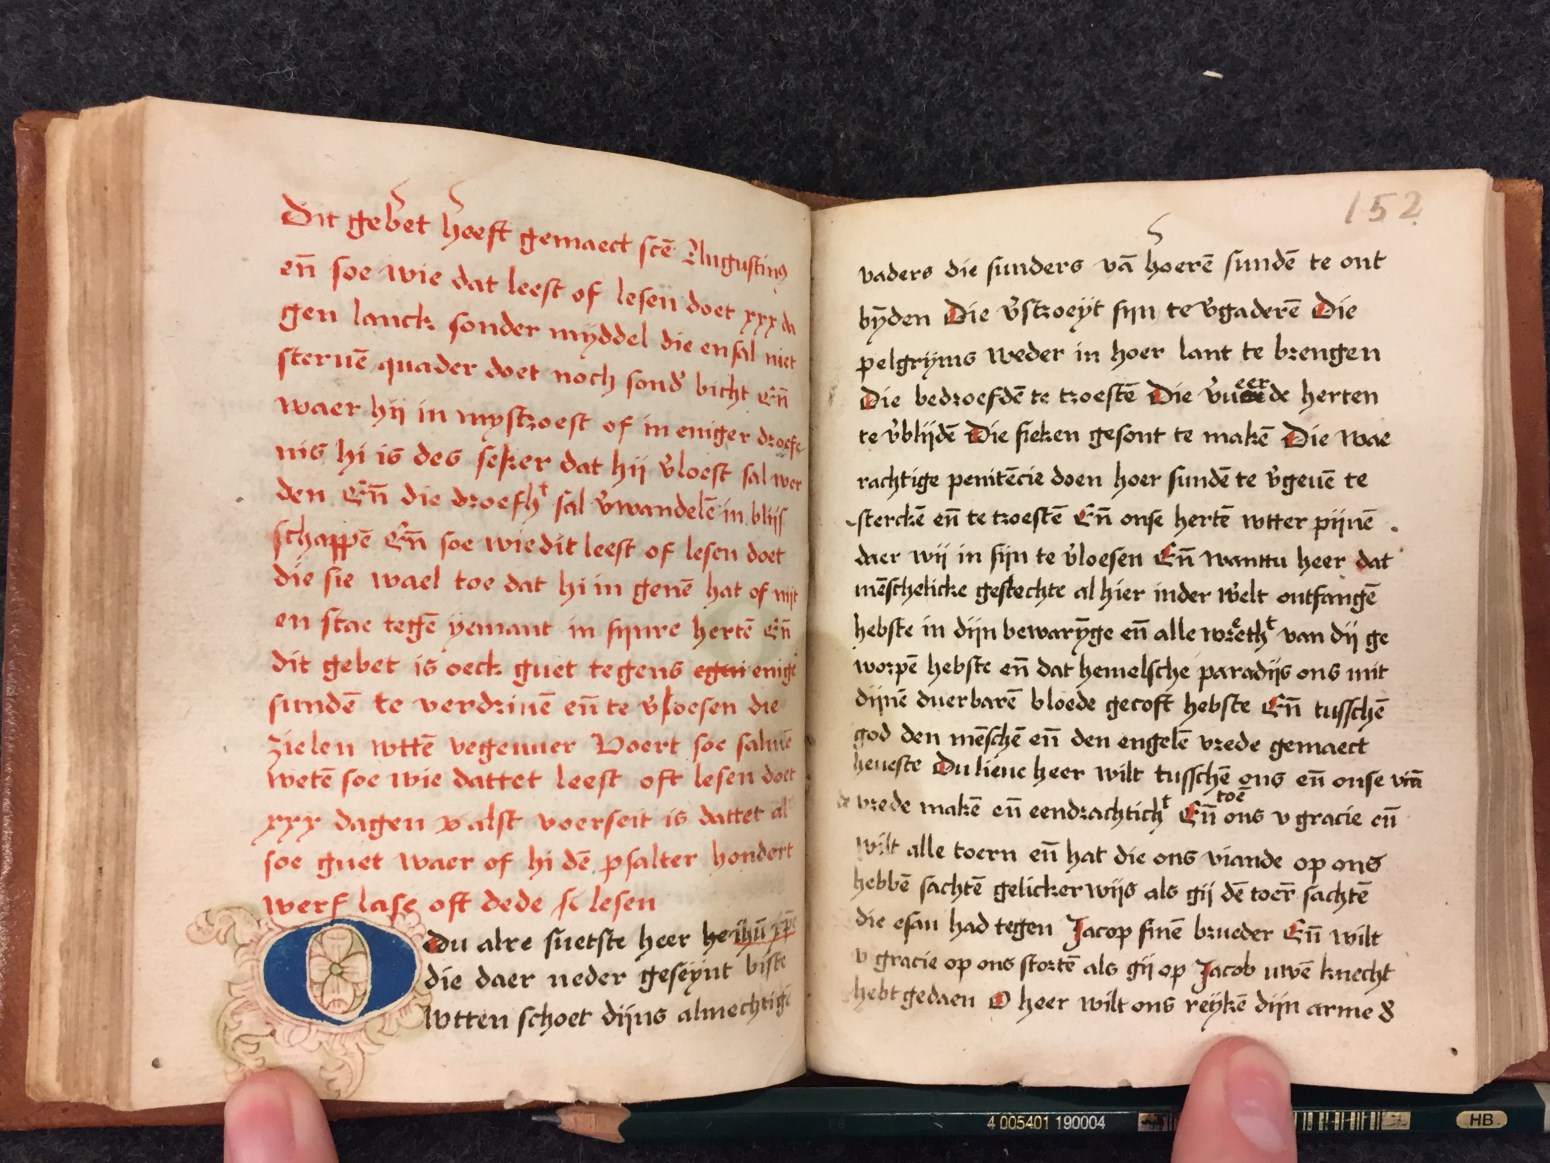 Dit gebet heeft gemaect scē Augustinꝰ
eñ soe wie dat leest of lesen doet xxx da
gen lanck sonder myddel die en sal niet
steruē quader doet noch sond᷑ bicht Eñ
waer hij in mystroest of in eniger droefe
nis hi is des seker dat hij v᷑loest sal wer
den Eñ die droefhᵗ sal v᷑wandelē in blijs
schappē Eñ soe wie dit leest of lesen doet
die sie wael toe dat hi in genē hat of nijt
en stae tegē yemant in sijnre hertē Eñ
dit gebet is oeck guet tegens egen enige
sundē te verdriuē eñ te v᷑loesen die
zielen wttē vegeuuer Voert soe salmē
wetē soe wie dattet leest oft lesen doet
xxx dagen alst voerseit is dattet al
soe guet waer of hi dē psalter hondert
werf lase oft dede lesen
O Du alre suetste heer he ihū xp̄e
die daer neder geseynt biste
wtten schoet dijns almechtigē
152
vaders die sunders vā hoerē sundē te ont
bynden Die v᷑stroeyt sijn te v᷑gaderē Die
pelgryms weder in hoer lant te brengen
Die bedroefdē te troestē Die v᷑ueerde herten
te v᷑blijdē Die sieken gesont te makē Die wae
rachtige penitēcie doen hoer sundē te v᷑geuē te
sterckē eñ te troestē Eñ onse hertē wtter pijnē
daer wij in sijn te v᷑loesen Eñ wanttu heer dat
mēschelicke geslechte al hier inder w᷑elt ontfangē
hebste in dijn bewarȳge eñ alle wreethᵗ van dij ge
worpē hebste eñ dat hemelsche paradijs ons mit
dijnē duerbarē bloede gecoft hebste Eñ tusschē
god den mēschē eñ den engelē vrede gemaect
heueste Du lieue heer wilt tusschē ons eñ onse viā
de vrede makē eñ eendrachtichᵗ Eñ toē ons v gracie eñ
wilt alle toern eñ hat die ons viande op ons
hebbē sachtē gelickerwijs als gij dē toer̄ sachtē
die esau had tegen Jacop sinē brueder Eñ wilt
v gracie op ons stortē als gij op Jacob uwē knecht
hebt gedaen O heer wilt ons reykē dijn arme
4 005401 190004
HB